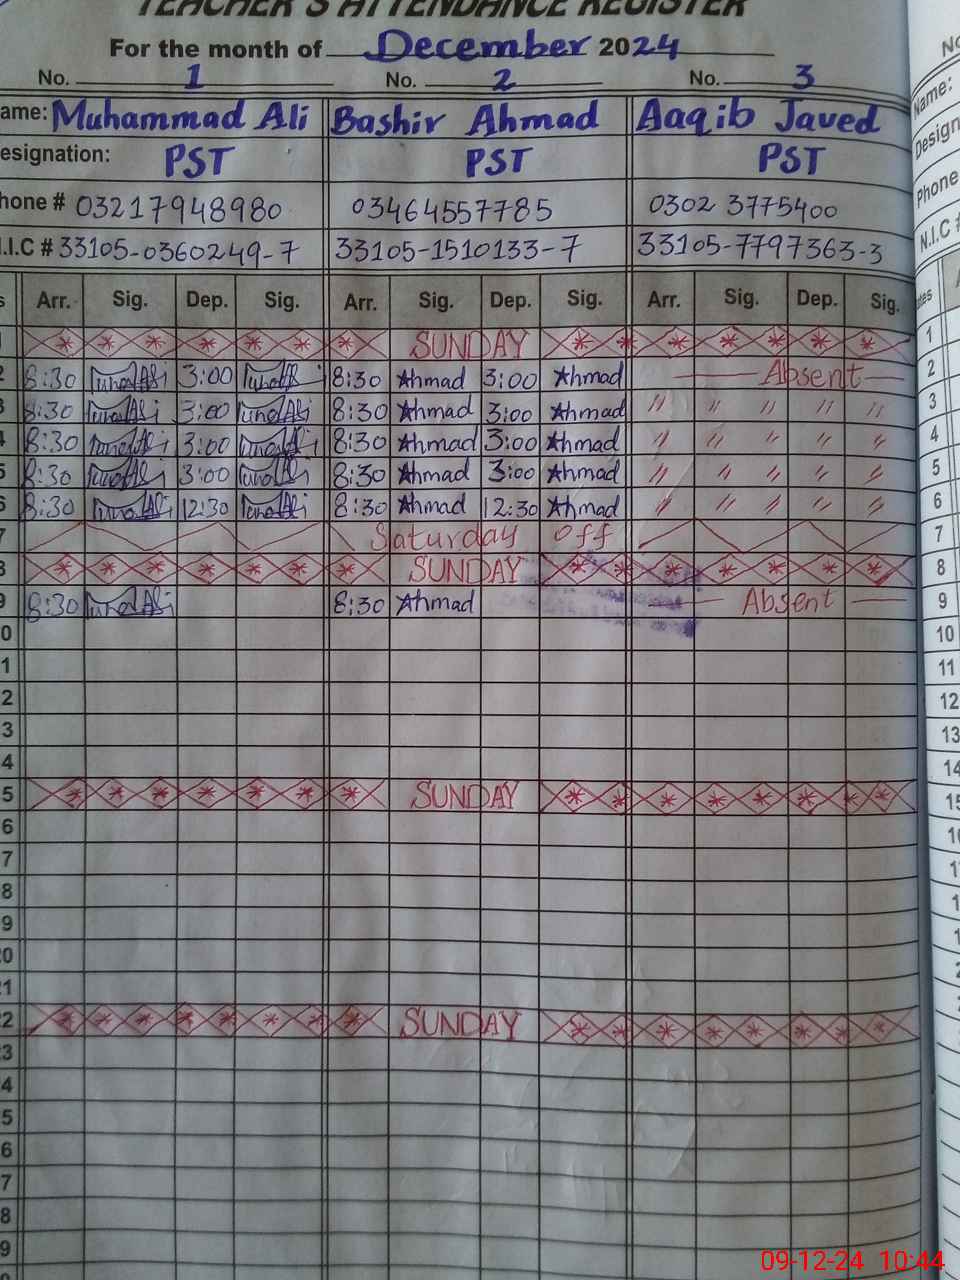 TEACHER'S ATTENDANCE REGISTER
For the month of December 2024
No. 1 No. 2 No. 3
ame: Muhammad Ali Bashir Ahmad Aaqib Javed
esignation: PST PST PST
hone # 03217948980 03464557785 0302 3775400
.I.C # 33105-0360249-7 33105-1510133-7 33105-7797363-3
s Arr. Sig. Dep. Sig. Arr. Sig. Dep. Sig. Arr. Sig. Dep. Sig.
SUNDAY
2 8:30 3:00 8:30 Ahmad 3:00 Ahmad Absent
3 8:30 3:00 8:30 Ahmad 3:00 Ahmad " " " " "
4 8:30 3:00 8:30 Ahmad 3:00 Ahmad " " " " "
5 8:30 3:00 8:30 Ahmad 3:00 Ahmad " " " " "
6 8:30 12:30 8:30 Ahmad 12:30 Ahmad " " " " "
7 Saturday off
8 SUNDAY
9 8:30 8:30 Ahmad Absent
0
1
2
3
4
5 SUNDAY
6
7
8
9
20
21
22 SUNDAY
23
4
5
6
7
8
9
No
Name:
Design
Phone
N.I.C #
ates
1
2
3
4
5
6
7
8
9
10
11
12
13
14
15
09-12-24 10:44